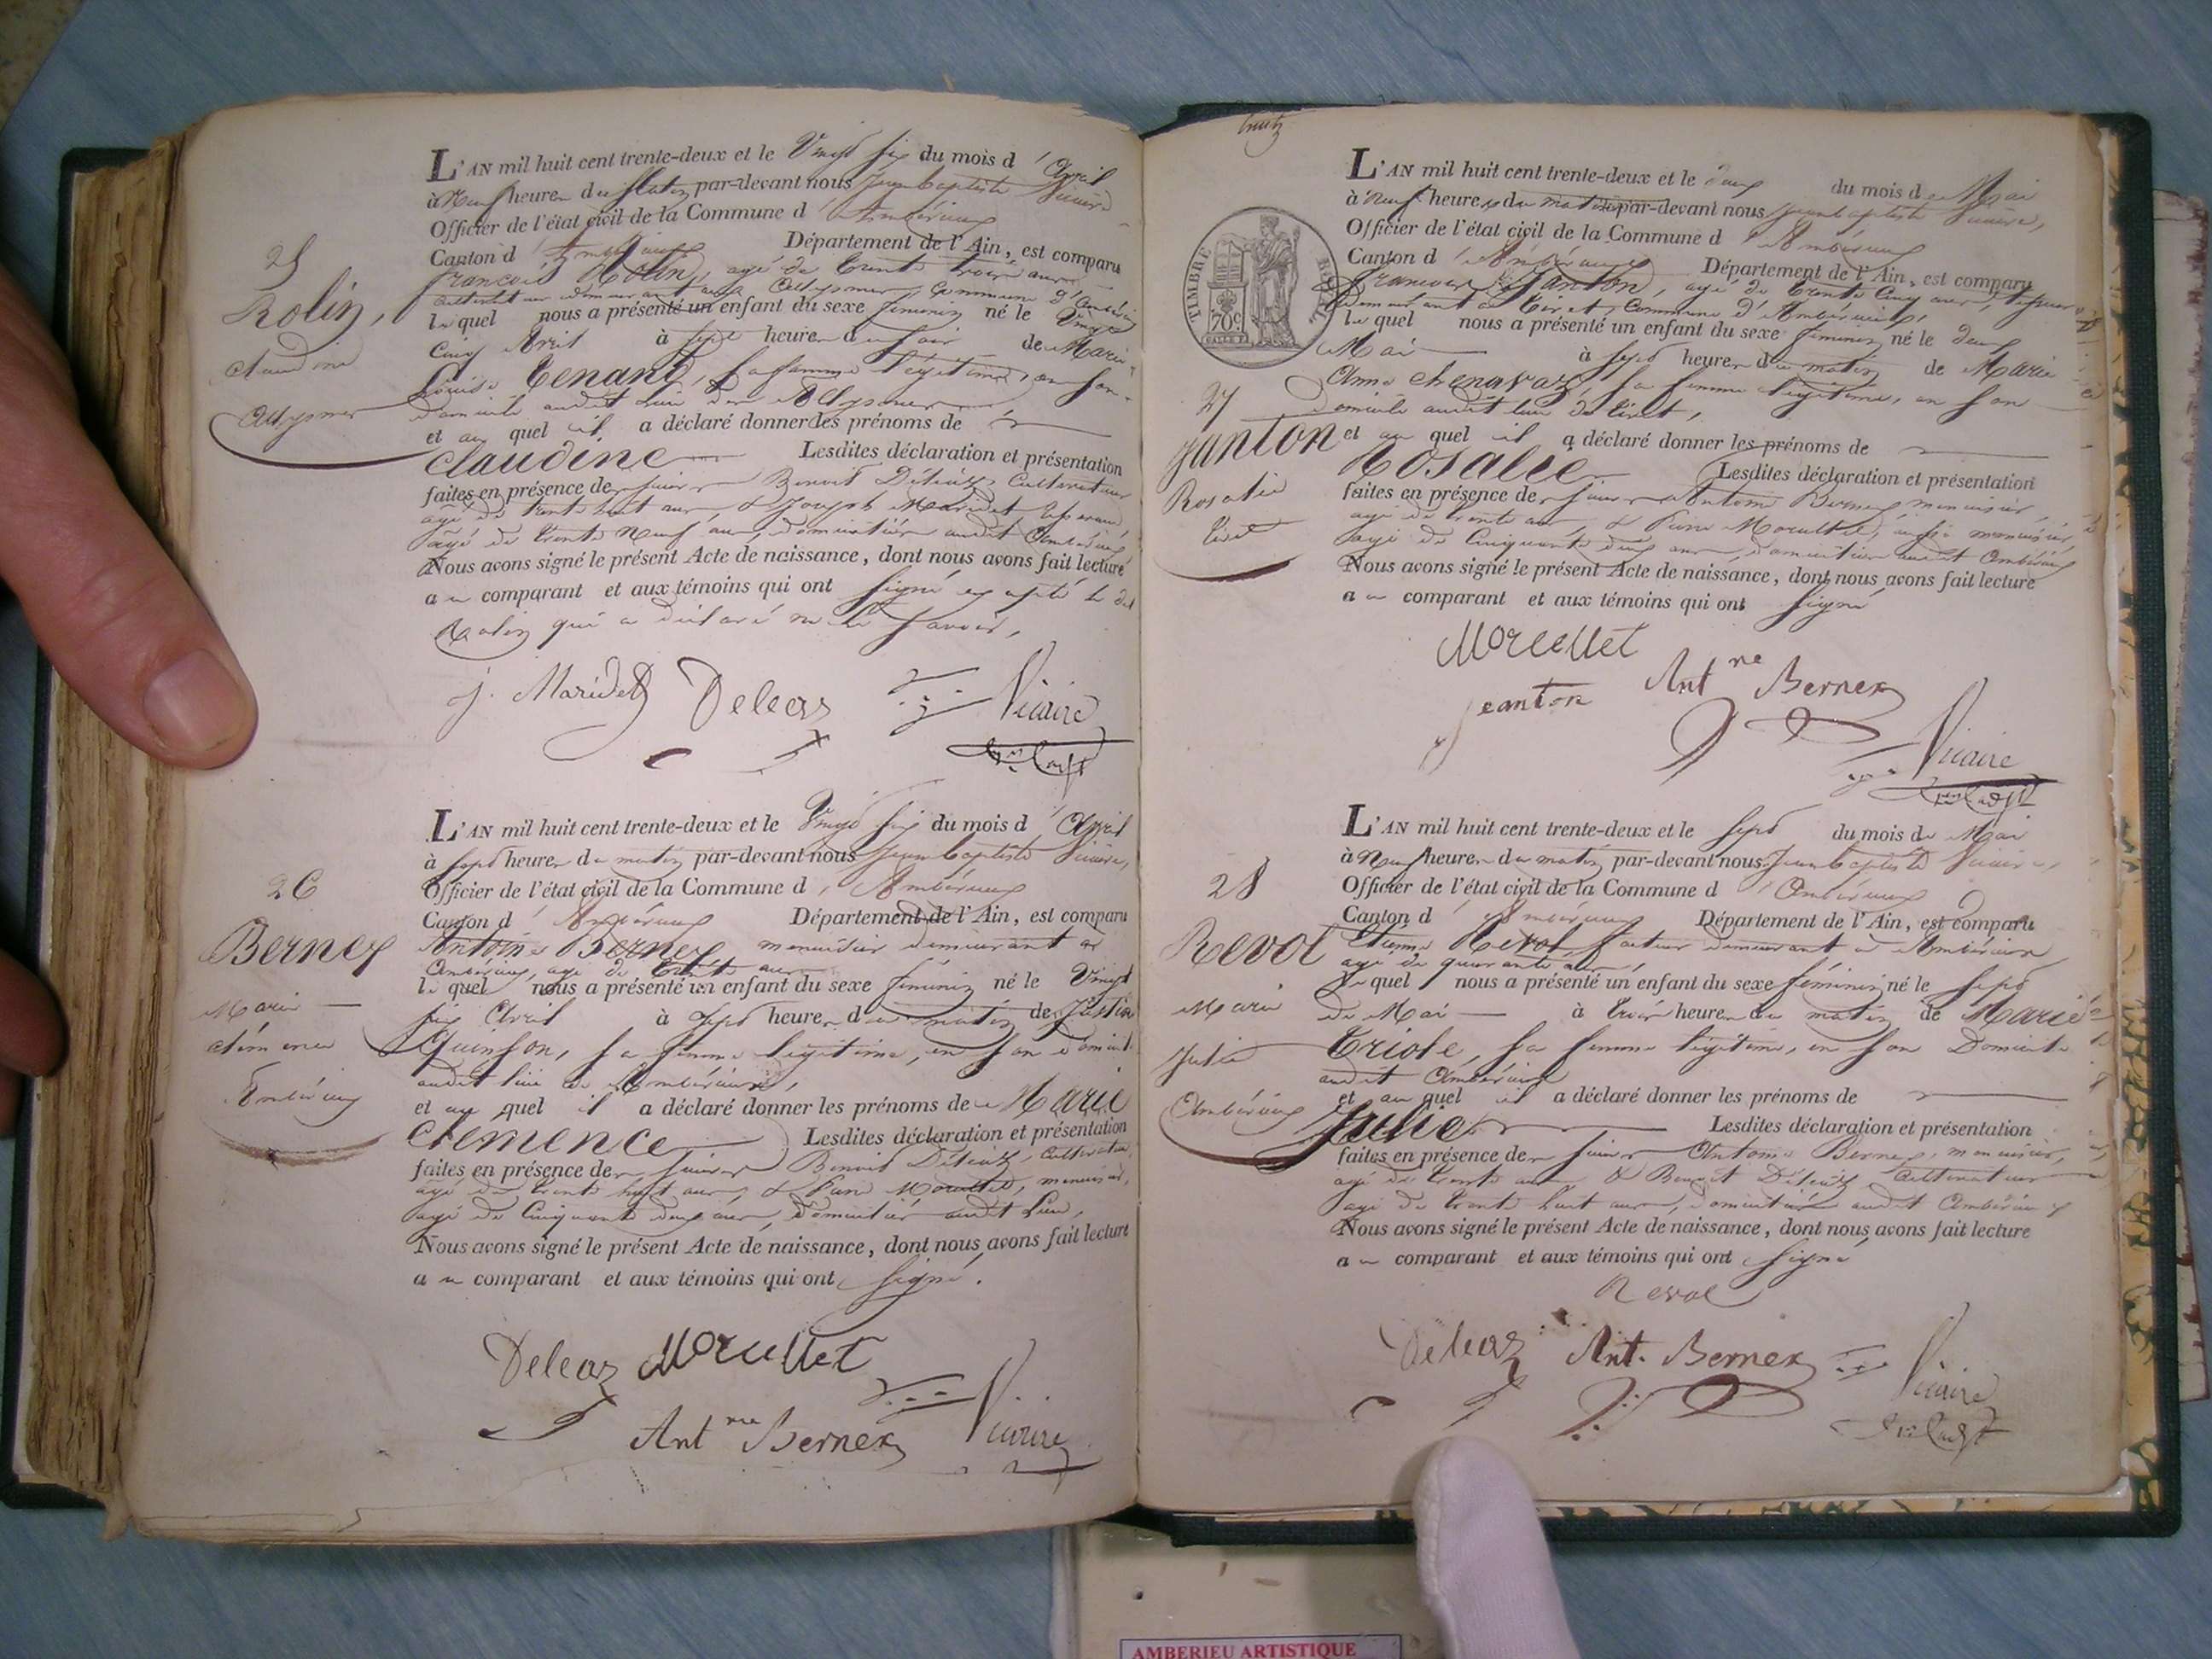 25
Rolin,
claudine
L'AN mil huit cent trente-deux et le Vingt six du mois d'Avril
à Neuf heure du Matin par-devant nous Jean baptiste Vicaire
Officier de l'état civil de la Commune d'Ambérieux
Canton d'Ambérieux Département de l'Ain, est comparu
francois Rolin, agé de trente trois ans
cultivateur demeurant aux Commune d'Ambérieux
le quel nous a présenté un enfant du sexe feminin né le Vingt
Cinq Avril à sept heure du soir de Marie
Louise tenand, sa femme legitime, en son
domicile audit Lieu des
et au quel il a déclaré donner les prénoms de
claudine Lesdites déclaration et présentation
faites en présence de sieurs Benoit Déléaz Cultivateur
agé de trente huit ans, & Joseph Maridet
agé de trente Neuf ans, domiciliés audit Ambérieux
Nous avons signé le présent Acte de naissance, dont nous avons fait lecture
au comparant et aux témoins qui ont signé excepté le dit
Rolin qui a déclaré ne le savoir,
j. Maridet Deleaz Vicaire
26
Bernex
Marie
clémence
Ambérieux
L'AN mil huit cent trente-deux et le Vingt six du mois d'Avril
à sept heure du matin par-devant nous Jean baptiste Vicaire,
Officier de l'état civil de la Commune d'Ambérieux
Canton d'Ambérieux Département de l'Ain, est comparu
Antoine Bernex menuisier demeurant a
Ambérieux, agé de trente ans
le quel nous a présenté un enfant du sexe féminin né le Vingt
six Avril à sept heure du matin de Justine
Quinson, sa femme legitime, en son domicile
audit lieu de Ambérieux,
et au quel il a déclaré donner les prénoms de Marie
clemence Lesdites déclaration et présentation
faites en présence de sieurs Benoit Déléaz, cultivateur,
agé de trente huit ans, & Pierre Morcellet, menuisier,
agé de Cinquante deux ans, domiciliés audit Lieu,
Nous avons signé le présent Acte de naissance, dont nous avons fait lecture
au comparant et aux témoins qui ont signé.
Deleaz Morcellet
Antne Bernex Vicaire
TIMBRE ROYAL
70c
27
Janton
Rosalie
tiret
L'AN mil huit cent trente-deux et le deux du mois de Mai
à Neuf heure du matin par-devant nous Jean baptiste Vicaire,
Officier de l'état civil de la Commune d'Ambérieux
Canton d'Ambérieux Département de l'Ain, est comparu
francois Janton, agé de trente Cinq ans,
demeurant a tiret, Commune d'Ambérieux,
le quel nous a présenté un enfant du sexe féminin né le deux
Mai à sept heure du matin de Marie
Anne chenavaz, sa femme legitime, en son
domicile audit lieu de tiret,
et au quel il a déclaré donner les prénoms de
Rosalie Lesdites déclaration et présentation
faites en présence de sieurs Antoine Bernex menuisier,
agé de trente ans & Pierre Morcellet, aussi menuisier,
agé de Cinquante deux ans domiciliés audit Ambérieux
Nous avons signé le présent Acte de naissance, dont nous avons fait lecture
au comparant et aux témoins qui ont signé
Morcellet
Jeanton Antne Bernex
Vicaire
28
Revol
Marie
Julie
Ambérieux
L'AN mil huit cent trente-deux et le sept du mois de Mai
à Neuf heure du matin par-devant nous Jean baptiste Vicaire,
Officier de l'état civil de la Commune d'Ambérieux
Canton d'Ambérieux Département de l'Ain, est comparu
Etienne Revol, facteur demeurant a Ambérieux
agé de quarante ans,
le quel nous a présenté un enfant du sexe féminin né le sept
de Mai à trois heure du matin de Marie
triole, sa femme legitime, en son Domicile
audit Ambérieux
et au quel il a déclaré donner les prénoms de
Julie Lesdites déclaration et présentation
faites en présence de sieurs Antoine Bernex, menuisier,
agé de trente ans & Benoit Déléaz Cultivateur
agé de trente huit ans, domiciliés audit Ambérieux
Nous avons signé le présent Acte de naissance, dont nous avons fait lecture
au comparant et aux témoins qui ont signé
Revol
Deleaz Ant. Bernex Vicaire
AMBERIEU ARTISTIQUE